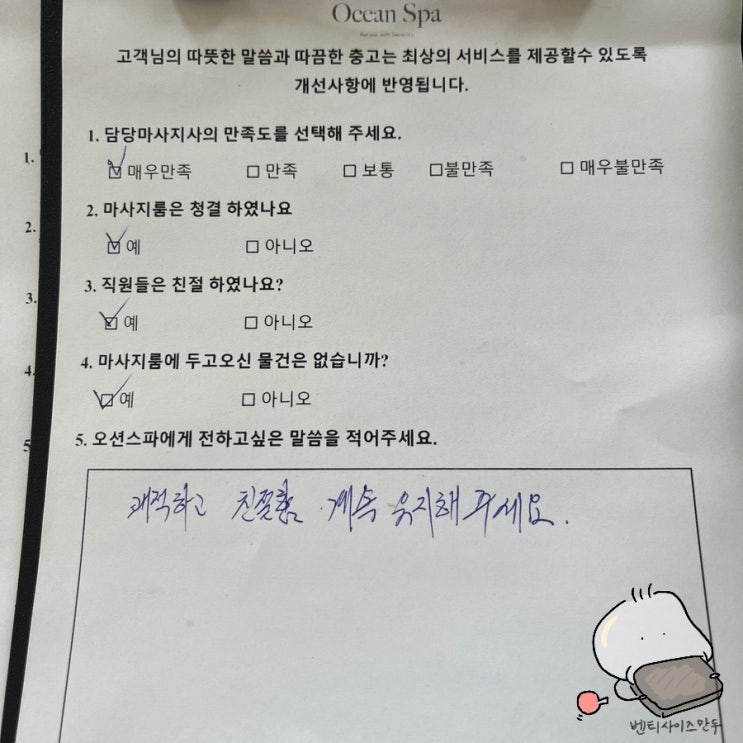 Ocean Spa
고객님의 따뜻한 말씀과 따끔한 충고는 최상의 서비스를 제공할수 있도록
개선사항에 반영됩니다.
1. 담당마사지사의 만족도를 선택해 주세요.
☑ 매우만족 ☐ 만족 ☐ 보통 ☐불만족 ☐ 매우불만족
2. 마사지룸은 청결 하였나요
☑ 예 ☐ 아니오
3. 직원들은 친절 하였나요?
☑ 예 ☐ 아니오
4. 마사지룸에 두고오신 물건은 없습니까?
☑ 예 ☐ 아니오
5. 오션스파에게 전하고싶은 말씀을 적어주세요.
쾌적하고 친절함 계속 유지해 주세요.
벤티사이즈만두
1.
2.
3.
4.
5